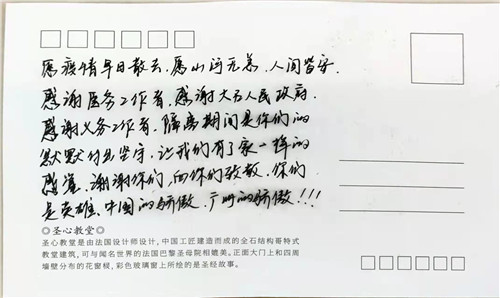 愿疫情早日散去,愿山河无恙,人间皆安.
感谢医务工作者,感谢大石人民政府.
感谢义务工作者,隔离期间是你们的
默默付出坚守,让我们有了家一样的
感觉,谢谢你们,向你们致敬,你们
是英雄,中国的骄傲,广州的骄傲!!!
◎圣心教堂◎
圣心教堂是由法国设计师设计,中国工匠建造而成的全石结构哥特式
教堂建筑,可与闻名世界的法国巴黎圣母院相媲美。正面大门上和四周
墙壁分布的花窗棂,彩色玻璃窗上所绘的是圣经故事。